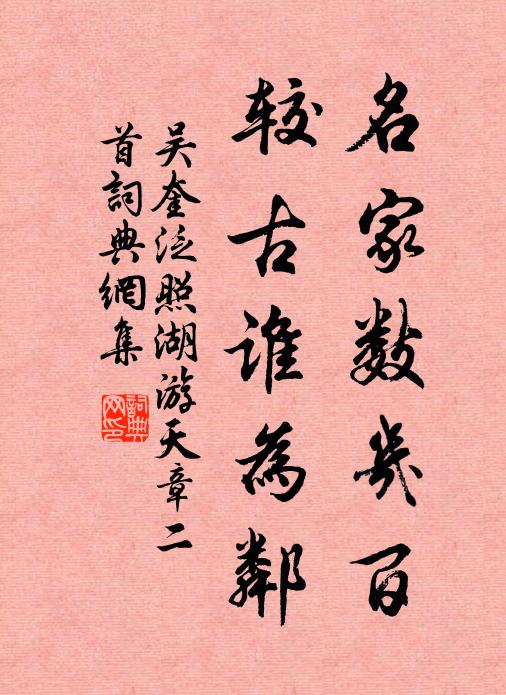 名家数几百
较古谁為鄰
吴奎泛照湖游天章二
首詞典網集
詞典
网印